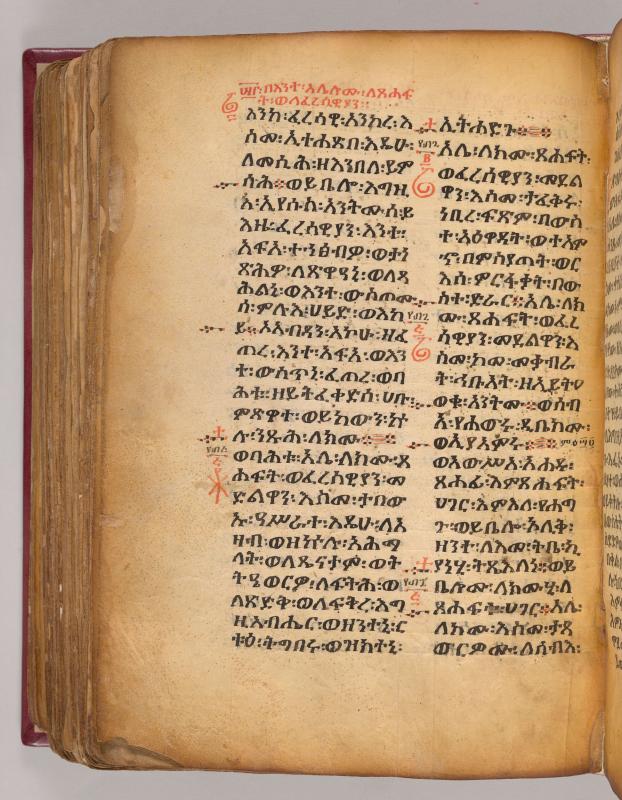 በእንተ፡አሌሎሙ፡ለጸሐፍ
ት፡ወለፈረሳዊያን፡፡
እንከ፡ፈረሳዊ፡አንከረ፡እ
ስመ፡ኢተሐጽበ፡እዴሁ፡
ለመሲሕ፡ዘእንበለ፡ይም
ሳሕ፡ወይቤሎ፡እግዚ
እ፡ኢየሱስ፡አንትሙሰ፡ይ
እዜ፡ፈረሳዊያን፡እንተ፡
አፍአ፡ተኀፅብዎ፡ወታነ
ጽሕዎ፡ለጽዋዓኒ፡ወለጻ
ሕልኒ፡ወእንተ፡ውስጦሙ
ሰ፡ምሉእ፡ሀይድ፡ወእከ
ይ፡አአብዳን፡አኮሁ፡ዘፈ
ጠረ፡እንተ፡አፍአ፡ወእን
ተ፡ውስጥኒ፡ፈጠረ፡ወባ
ሕቱ፡ዘይትፈቀድሰ፡ሀቡ፡
ምጽዋተ፡ወይከውን፡ኵ
ሉ፡ንጹሕ፡ለክሙ፡
ወባሕቱ፡አሌ፡ለክሙ፡ጸ
ሐፍት፡ወፈረሳዊያን፡መ
ድልዋን፡እስመ፡ታበው
ኡ፡ዓሥራተ፡እዴሁ፡ለአ
ዛብ፡ወዘኵሉ፡አሕማ
ላት፡ወለጼናታም፡ወት
ትዔወርዎ፡ለፍትሕ፡ወ
ለጽድቅ፡ወለፍትረ፡እግ
ዚአብሔር፡ወዘንተኒ፡ር
ቱዕ፡ትግበሩ፡ወዝክተኒ፡
ኢትሕድጉ፡
አሌ፡ለክሙ፡ጸሐፍት፡
ወፈረሳዊያን፡መደል
ዋን፡እስመ፡ታፈቅሩ፡
ነቢረ፡ፍጽም፡በውስ
ተ፡አዕዋዳት፡ወተአም
ኆ፡በምስያጣት፡ወር
እሰ፡ምርፋቃት፡በው
ስተ፡ድራር፡አሌ፡ለክ
ሙ፡ጸሐፍት፡ወፈረ
ሳዊያን፡መደልዋን፡እ
ስመ፡ከመ፡መቃብራ
ት፡ኅቡኣት፡ዘኢይትዐ
ወቁ፡አንትሙ፡ወሰብ
እ፡የሐውሩ፡ዲቤክሙ፡
ወኢያአምሩ፡
ወአውሥአ፡አሐዱ፡
ጸሐፊ፡እምጸሐፍት፡
ሀገር፡እምእለ፡የሐግ
ጉ፡ወይቤሎ፡ሊቅ፡
ዘንተ፡ለእመ፡ትቤ፡ኪ
ያነሂ፡ትጼእለነ፡ወይ
ቤሎሙ፡ለክሙሂ፡ለ
ጸሐፍተ፡ሀገር፡አሌ፡
ለክሙ፡እስመ፡ታጸ
ውርዎሙ፡ለሰብእ፡